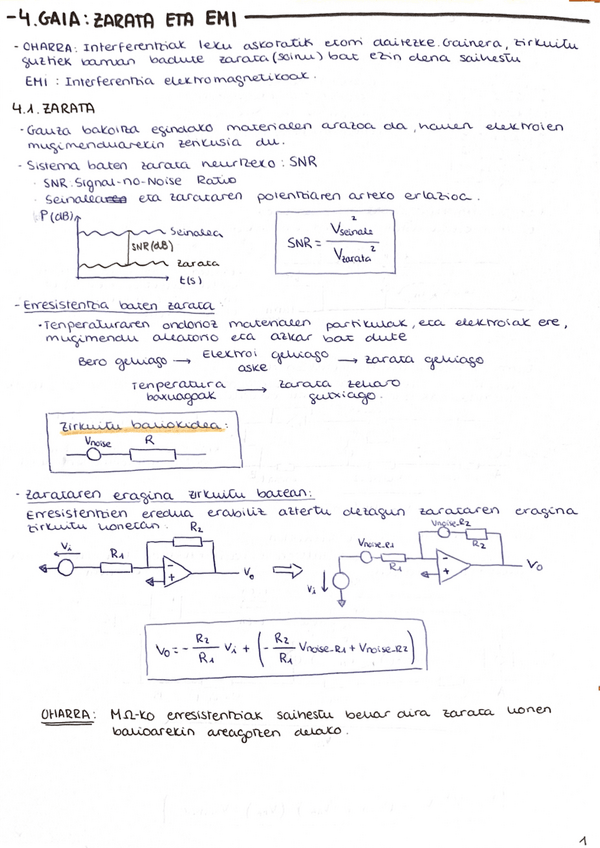 - 4. GAIA: ZARATA ETA EMI
- OHARRA: Interferentziak leku askotatik etorri daitezke. Gainera, zirkuitu
guztiek barnan badute zarata (soinu) bat ezin dena saihestu
EMI: Interferentzia elektromagnetikoak.
4.1. ZARATA
· Gauza bakoitza egindako materialen arazoa da, hauen elektroien
mugimenduarekin zerikusia du.
· Sistema baten zarata neurtzeko: SNR
· SNR: Signal-no-Noise Ratio
· Seinalearen eta zarataren potentziaren arteko erlazioa.
P(dB)
Seinalea
SNR(dB)
zarata
t(s)
SNR = V²seinale / V²zarata
- Erresistentzia baten zarata:
· Tenperaturaren ondorioz materialen partikulak, eta elektroiak ere,
mugimendu aleatorio eta azkar bat dute
Bero gehiago → Elektroi gehiago aske → zarata gehiago
Tenperatura baxuagoak → zarata zeharo gutxiago.
Zirkuitu baliokidea:
Vnoise R
- Zarataren eragina zirkuitu batean:
Erresistentzien eredua erabiliz aztertu dezagun zarataren eragina
zirkuitu honetan.
R2
Vi R1 - + Vo ⇒
Vnoise-R2
R2
Vnoise-R1
R1
Vi - + Vo
Vo = - R2/R1 Vi + (- R2/R1 Vnoise-R1 + Vnoise-R2)
OHARRA: MΩ-ko erresistentziak saihestu behar dira zarata honen
balioarekin areagotzen delako.
1